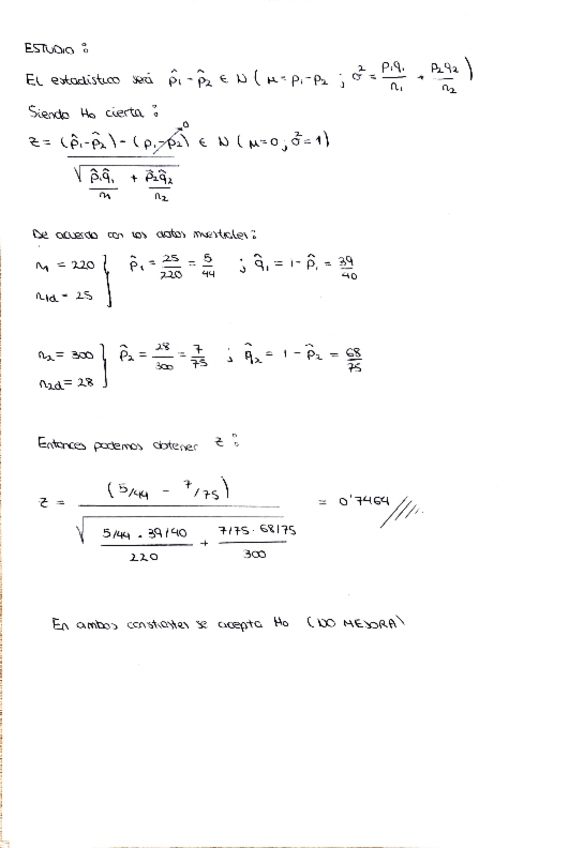 ESTUDIO:
El estadístico será p̂₁ - p̂₂ ∈ N ( μ = p₁ - p₂ ; σ² = p₁q₁/n₁ + p₂q₂/n₂ )
Siendo Ho cierta:
z = (p̂₁-p̂₂) - (p₁-p₂)→0 / √(p̂₁q̂₁/n₁ + p̂₂q̂₂/n₂) ∈ N ( μ=0 ; σ²=1 )
De acuerdo con los datos muestrales:
n₁ = 220 } p̂₁ = 25/220 = 5/44 ; q̂₁ = 1 - p̂₁ = 39/40
n₁d = 25
n₂ = 300 } p̂₂ = 28/300 = 7/75 ; q̂₂ = 1 - p̂₂ = 68/75
n₂d = 28
Entonces podemos obtener z:
z = (5/44 - 7/75) / √(5/44 · 39/40 / 220 + 7/75 · 68/75 / 300) = 0'7464
En ambos constrastes se acepta Ho (NO MEJORA)